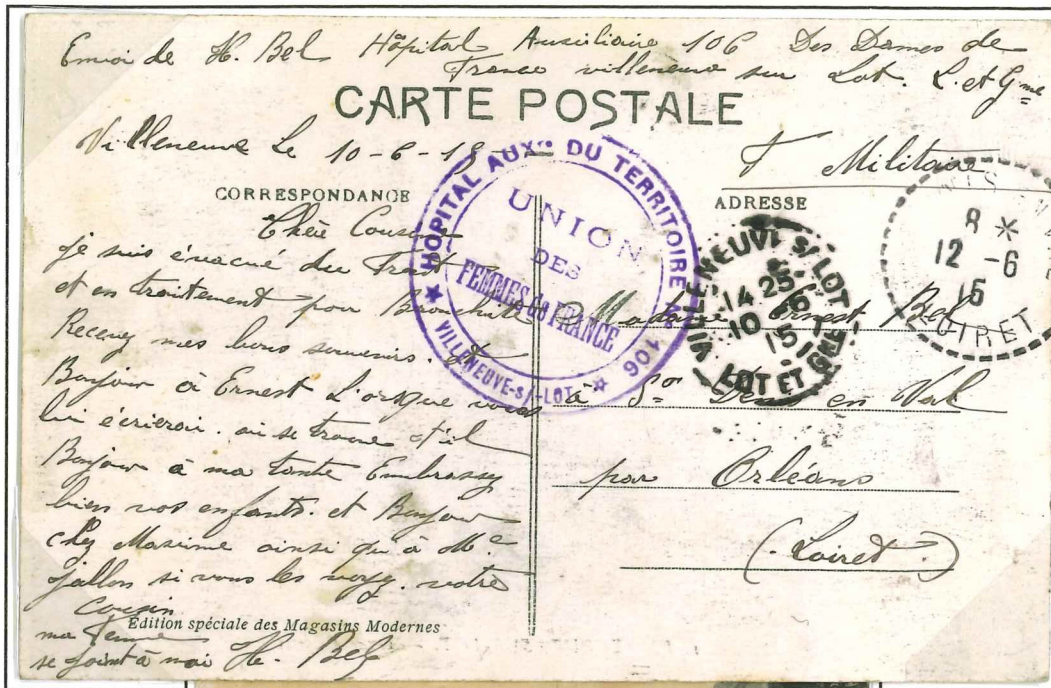 Envoi de H. Bel Hôpital Auxiliaire 106 Des Dames de
France villeneuve sur Lot. L. et G^ne
CARTE POSTALE
Villeneuve Le 10-6-15
F Militaire
CORRESPONDANCE
ADRESSE
Chère Cousine
je suis évacué du Front
et en traitement pour Bronchite
Recevez mes bons souvenirs. et
Bonjour à Ernest L'orsque vous
lui écrierai. ou se trouve t'il
Bonjour à ma tante Embrassez
bien vos enfants. et Bonjour
chez Maxime ainsi qu'à M^e
Jallon si vous les voyez. votre
Cousin
ma Femme
se joint à moi H. Bel
Édition spéciale des Magasins Modernes
Madame Ernest Bel
à S^t Denis en Val
par Orléans
(Loiret.)
★ HOPITAL AUX^RE DU TERRITOIRE N° 106 ★
VILLENEUVE-s/-LOT
UNION
DES
FEMMES de FRANCE
VILLENEUVE S/ LOT
14 25
10 6
15
LOT ET GNE
8 *
12 -6
15
LOIRET